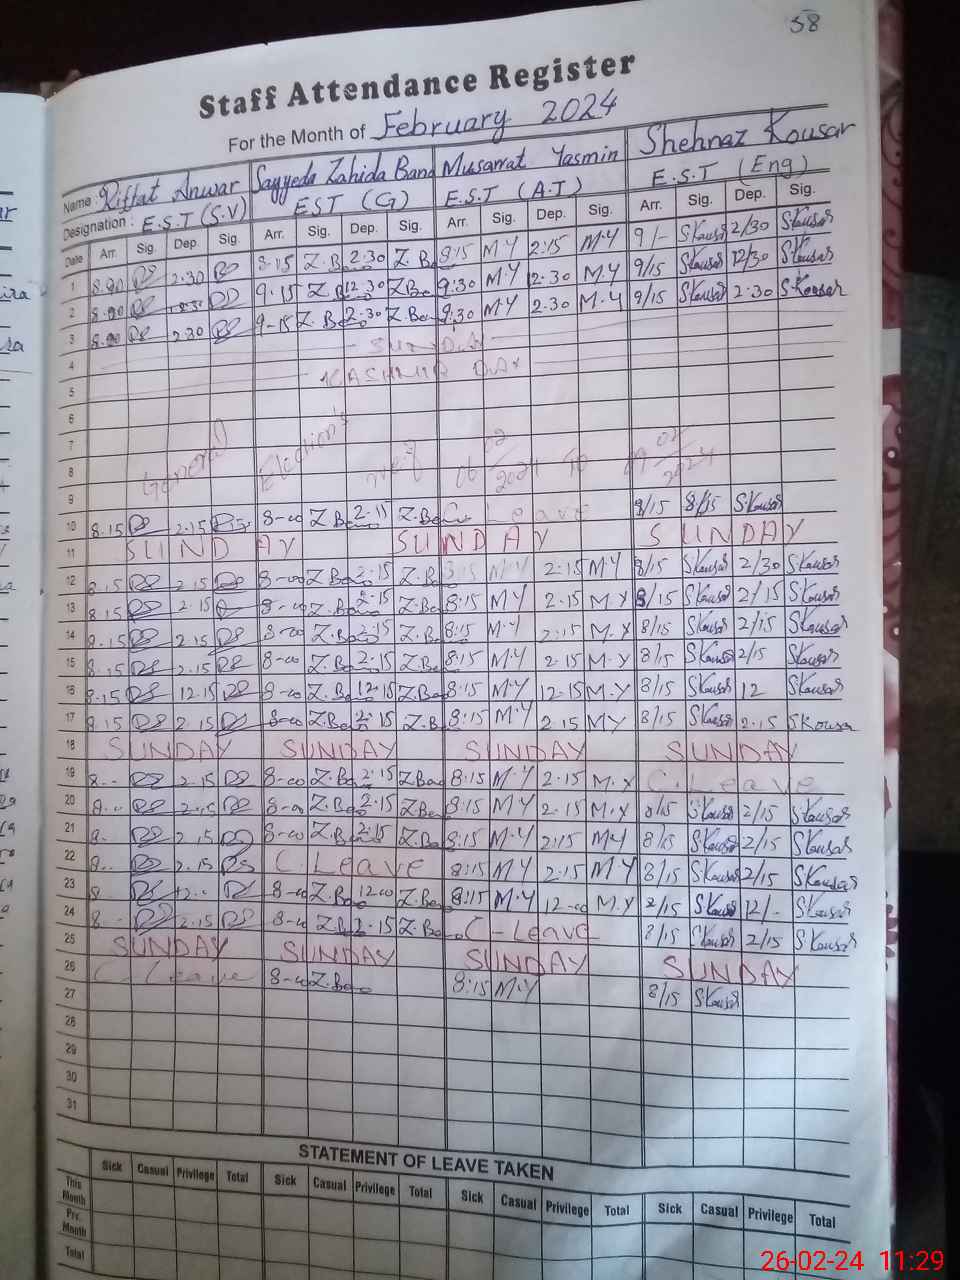 58
Staff Attendance Register
For the Month of February 2024
Name : Riffat Anwar Sayyeda Zahida Bano Musarrat Yasmin Shehnaz Kousar
Designation : E.S.T (S.V) EST (G) E.S.T (A.T) E.S.T (Eng)
Date Arr. Sig. Dep. Sig. Arr. Sig. Dep. Sig. Arr. Sig. Dep. Sig. Arr. Sig. Dep. Sig.
1 8.00 2.30 8.15 Z.B 2.30 Z.Ba 8:15 M.Y 2:15 M.Y 9/- SKousar 2/30 SKousar
2 8.00 9.15 Z.B 12.30 Z.Ba 9:30 M.Y 12.30 M.Y 9/15 SKousar 12/30 SKousar
3 8.00 2.30 9-15 Z.Ba 2.30 Z.Ba 9:30 M.Y 2.30 M.Y 9/15 SKousar 2.30 S.Kousar
4 - SUNDAY
5 - KASHMIR DAY
6
7
8 General Election's 06 02/2024 To 09 02/2024
9
10 8.15 2.15 8-00 Z.Ba 2.15 Z.Ba C. Leave 8/15 8/15 S.Kousar
11 SUNDAY SUNDAY SUNDAY
12 8.15 2.15 8-00 Z.Bao 2.15 Z.B 8:15 M.Y 2.15 M.Y 8/15 SKousar 2/30 SKousar
13 8.15 2.15 8-00 Z.Bao 2.15 Z.Ba 8:15 M.Y 2.15 M.Y 8/15 SKousar 2/15 SKousar
14 8.15 2.15 8-00 Z.Ba 2.15 Z.Ba 8:15 M.Y 2:15 M.Y 8/15 SKousar 2/15 SKousar
15 8.15 2.15 8-00 Z.Ba 2.15 Z.Ba 8:15 M.Y 2.15 M.Y 8/15 SKousar 2/15 SKousar
16 8.15 12.15 8-00 Z.Ba 12.15 Z.Bao 8:15 M.Y 12.15 M.Y 8/15 SKousar 12 SKousar
17 8.15 2.15 8-00 Z.Bao 2.15 Z.B 8:15 M.Y 2.15 MY 8/15 SKousar 2.15 SKousar
18 SUNDAY SUNDAY SUNDAY SUNDAY
19 8.. 2.15 8-00 Z.Bao 2.15 Z.Bao 8:15 M.Y 2.15 M.Y C. Leave
20 8.. 2.15 8-00 Z.Bao 2.15 Z.Ba 8:15 M.Y 2.15 M.Y 8/15 SKousar 2/15 SKousar
21 8.. 2.15 8-00 Z.Ba 2.15 Z.Ba 8:15 M.Y 2:15 MY 8/15 SKousar 2/15 SKousar
22 8.. 2.15 C. Leave 8:15 MY 2.15 MY 8/15 SKousar 2/15 SKousar
23 8 12.. 8-00 Z.Bao 12.00 Z.Ba 8:15 M.Y 12-00 M.Y 8/15 SKousar 12/- SKousar
24 8.. 2.15 8-00 Z.Ba 2.15 Z.Ba C-Leave 8/15 SKousar 2/15 SKousar
25 SUNDAY SUNDAY SUNDAY SUNDAY
26 C. Leave 8-00 Z.Bao 8:15 M.Y 8/15 SKousar
27
28
29
30
31
STATEMENT OF LEAVE TAKEN
Sick Casual Privilege Total Sick Casual Privilege Total Sick Casual Privilege Total Sick Casual Privilege Total
This Month
Prv. Month
Total
26-02-24 11:29